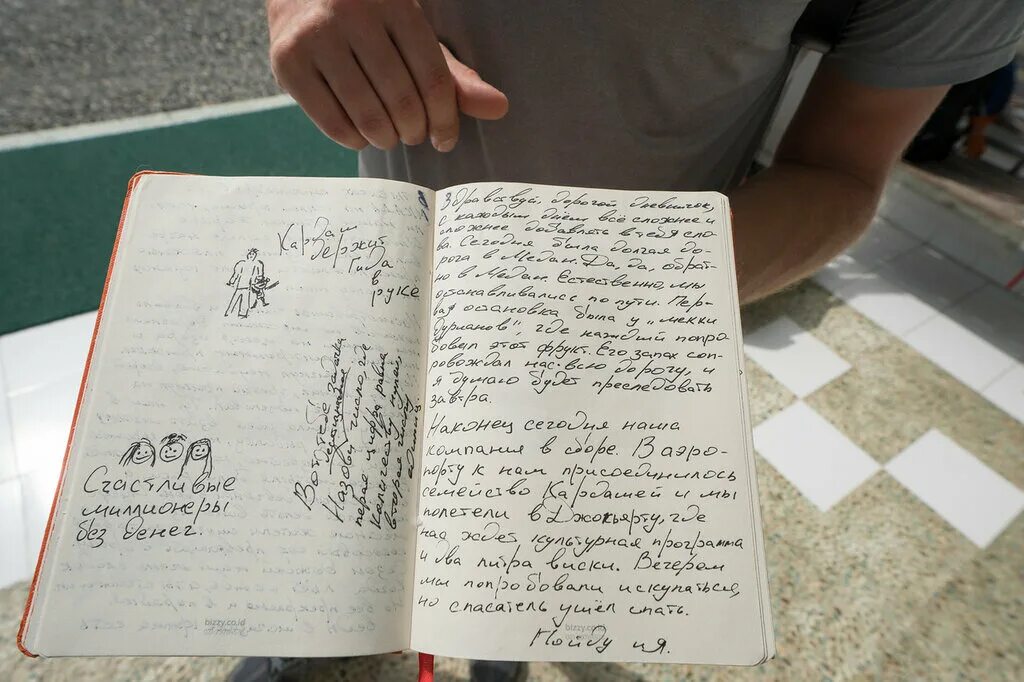 Кардаш
держит
Гида
в
руке
Счастливые
миллионеры
без денег.
Вот тебе загадка
Назови число, где
первая цифра равна
количеству нулей,
вторая
Здравствуй, дорогой дневничок,
с каждым днём всё сложнее и
сложнее добавлять в тебя сло-
ва. Сегодня была долгая до-
рога в Медан. Да, да, обрат-
но в Медан. Естественно, мы
останавливались по пути. Пер-
вая остановка была у "мекки
дурианов", где каждый попро
бовал этот фрукт. Его запах соп-
ровождал нас всю дорогу, и
я думаю будет преследовать
завтра.
Наконец сегодня наша
компания в сборе. В аэро-
порту к нам присоединилось
семейство Кардашей и мы
полетели в Джокьярту, где
нас ждёт культурная программа
и два литра виски. Вечером
мы попробовали искупаться,
но спасатель ушёл спать.
Пойду и я.
bizzy.co.id
bizzy.co.id